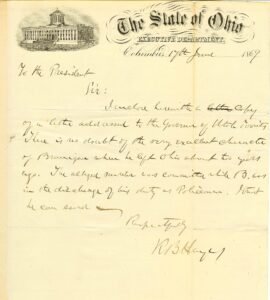 The State of Ohio
EXECUTIVE DEPARTMENT
Columbus 17th June 1869
To the President
Sir:
I enclose herewith a copy
of a letter addressed to the Governor of Utah Territory
There is no doubt of the very excellent character
of when he left Ohio about two years
ago. The alleged murder was committed while B. was
in the discharge of his duty as Policeman. I trust
he can
Respectfully
R B Hayes